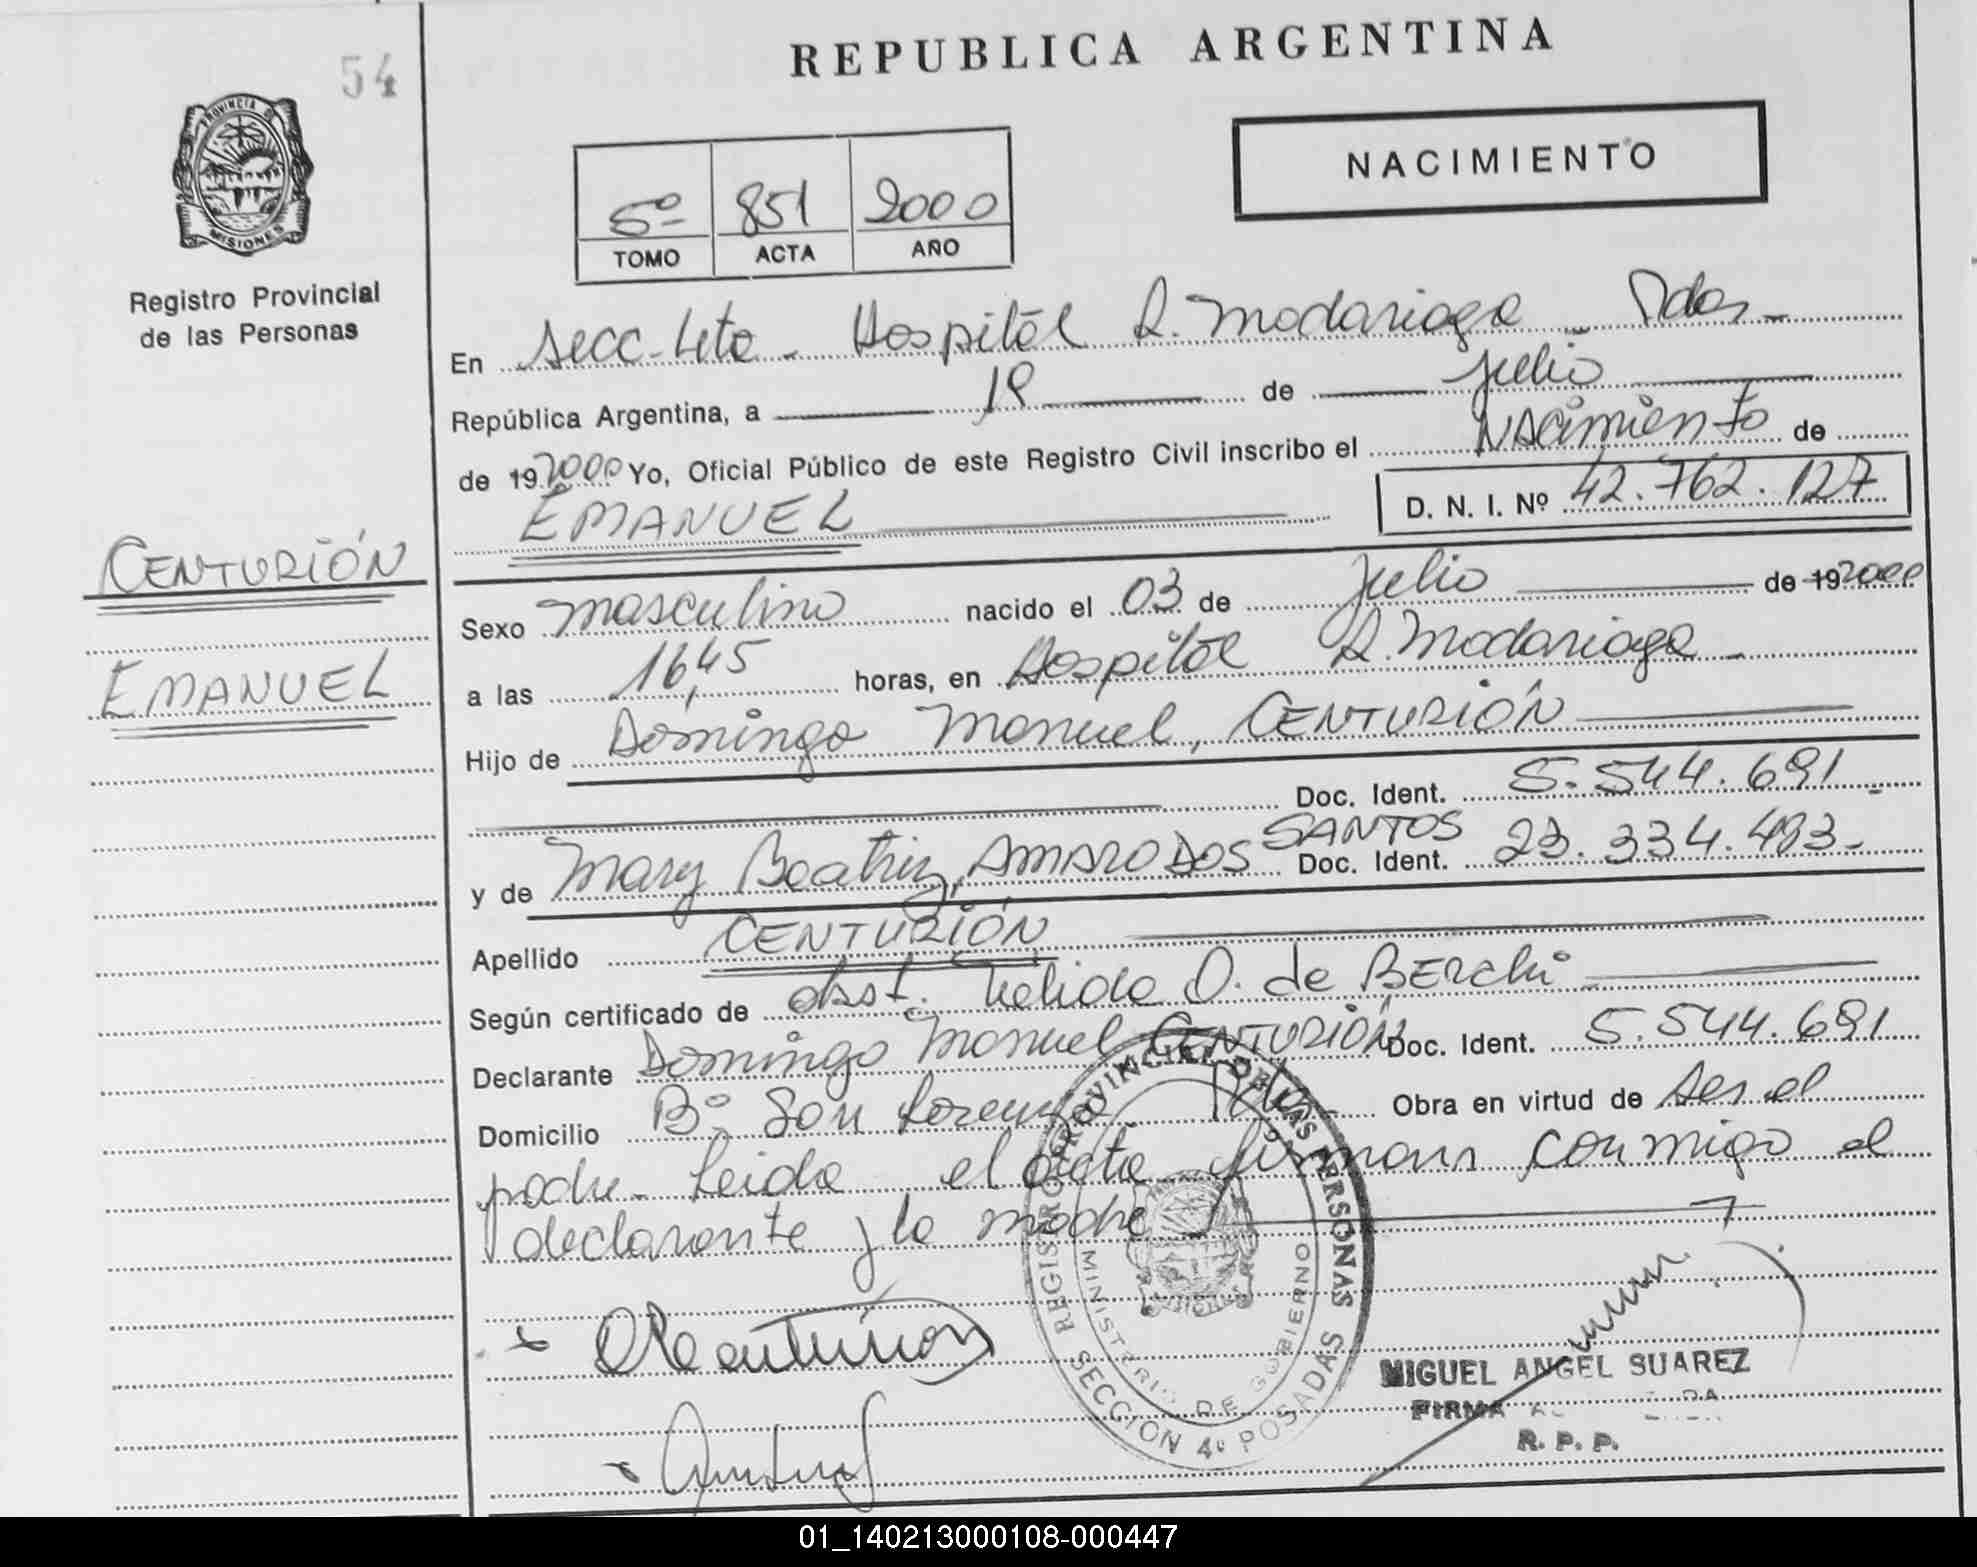 54
REPUBLICA ARGENTINA
PROVINCIA DE
MISIONES
Registro Provincial
de las Personas
5º 851 2000
TOMO ACTA AÑO
NACIMIENTO
En Secc. 4ta - Hospital R. Madariaga - Pdas -
República Argentina, a de Julio
de 19 2000 Yo, Oficial Público de este Registro Civil inscribo el Nacimiento de
EMANUEL D. N. I. Nº 42.762.127
CENTURIÓN
EMANUEL
Sexo masculino nacido el 03 de Julio de 19 2000
a las 16,45 horas, en Hospital R. Madariaga -
Hijo de Domingo Manuel, CENTURIÓN
Doc. Ident. 5.544.691 -
y de Mary Beatriz, AMARO DOS SANTOS Doc. Ident. 23.334.493 -
Apellido CENTURIÓN
Según certificado de obst. Nelida O. de BERCHI
Declarante Domingo Manuel CENTURIÓN Doc. Ident. 5.544.691
Domicilio Bº San Lorenzo Obra en virtud de ser el
padre - Leida el acta firman conmigo el
declarante y la madre
Centurion
REGISTRO PROVINCIAL DE LAS PERSONAS
MINISTERIO DE GOBIERNO
MISIONES
SECCION 4º POSADAS
MIGUEL ANGEL SUAREZ
FIRMA
R. P. P.
01_140213000108-000447